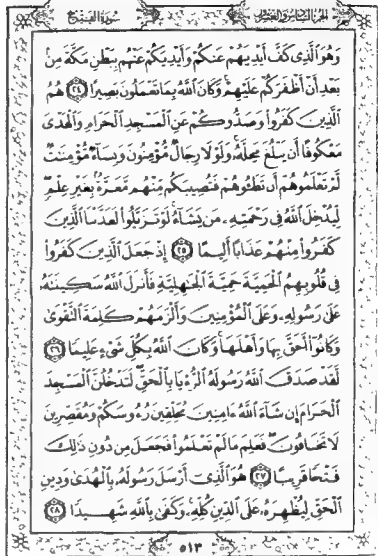 الجزء السادس والعشرون سورة الفتح
وَهُوَ ٱلَّذِى كَفَّ أَيْدِيَهُمْ عَنكُمْ وَأَيْدِيَكُمْ عَنْهُم بِبَطْنِ مَكَّةَ مِنۢ
بَعْدِ أَنْ أَظْفَرَكُمْ عَلَيْهِمْ ۚ وَكَانَ ٱللَّهُ بِمَا تَعْمَلُونَ بَصِيرًا ٢٤ هُمُ
ٱلَّذِينَ كَفَرُوا۟ وَصَدُّوكُمْ عَنِ ٱلْمَسْجِدِ ٱلْحَرَامِ وَٱلْهَدْىَ
مَعْكُوفًا أَن يَبْلُغَ مَحِلَّهُۥ ۚ وَلَوْلَا رِجَالٌ مُّؤْمِنُونَ وَنِسَآءٌ مُّؤْمِنَـٰتٌ
لَّمْ تَعْلَمُوهُمْ أَن تَطَـُٔوهُمْ فَتُصِيبَكُم مِّنْهُم مَّعَرَّةٌۢ بِغَيْرِ عِلْمٍ ۖ
لِّيُدْخِلَ ٱللَّهُ فِى رَحْمَتِهِۦ مَن يَشَآءُ ۚ لَوْ تَزَيَّلُوا۟ لَعَذَّبْنَا ٱلَّذِينَ
كَفَرُوا۟ مِنْهُمْ عَذَابًا أَلِيمًا ٢٥ إِذْ جَعَلَ ٱلَّذِينَ كَفَرُوا۟
فِى قُلُوبِهِمُ ٱلْحَمِيَّةَ حَمِيَّةَ ٱلْجَـٰهِلِيَّةِ فَأَنزَلَ ٱللَّهُ سَكِينَتَهُۥ
عَلَىٰ رَسُولِهِۦ وَعَلَى ٱلْمُؤْمِنِينَ وَأَلْزَمَهُمْ كَلِمَةَ ٱلتَّقْوَىٰ
وَكَانُوٓا۟ أَحَقَّ بِهَا وَأَهْلَهَا ۚ وَكَانَ ٱللَّهُ بِكُلِّ شَىْءٍ عَلِيمًا ٢٦
لَّقَدْ صَدَقَ ٱللَّهُ رَسُولَهُ ٱلرُّءْيَا بِٱلْحَقِّ ۖ لَتَدْخُلُنَّ ٱلْمَسْجِدَ
ٱلْحَرَامَ إِن شَآءَ ٱللَّهُ ءَامِنِينَ مُحَلِّقِينَ رُءُوسَكُمْ وَمُقَصِّرِينَ
لَا تَخَافُونَ ۖ فَعَلِمَ مَا لَمْ تَعْلَمُوا۟ فَجَعَلَ مِن دُونِ ذَٰلِكَ
فَتْحًا قَرِيبًا ٢٧ هُوَ ٱلَّذِىٓ أَرْسَلَ رَسُولَهُۥ بِٱلْهُدَىٰ وَدِينِ
ٱلْحَقِّ لِيُظْهِرَهُۥ عَلَى ٱلدِّينِ كُلِّهِۦ ۚ وَكَفَىٰ بِٱللَّهِ شَهِيدًا ٢٨
٥١٣